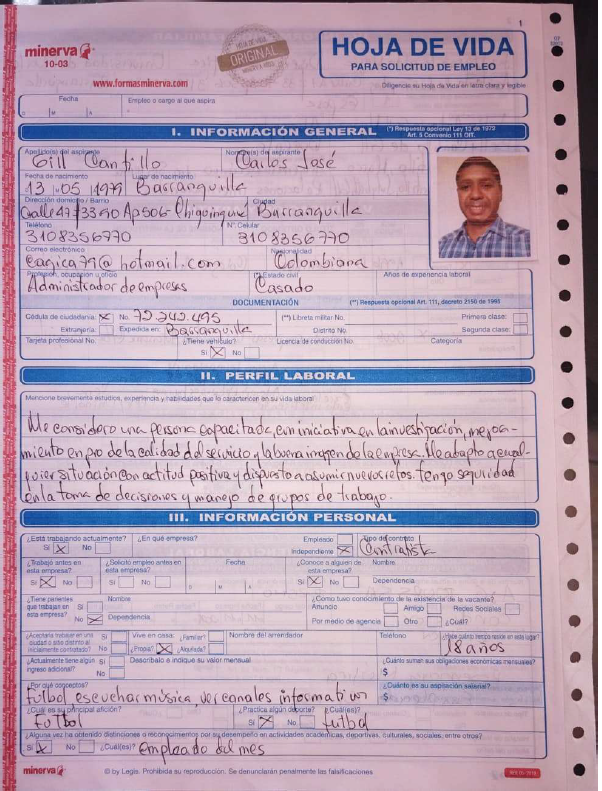 1
minerva
10-03
HOJA DE VIDA
PARA SOLICITUD DE EMPLEO
ORIGINAL
www.formasminerva.com
Diligencie su Hoja de Vida en letra clara y legible
Fecha Empleo o cargo al que aspira
D M A
I. INFORMACIÓN GENERAL (*) Respuesta opcional Ley 13 de 1972
Art. 5 Convenio 111 OIT.
Apellido(s) del aspirante Nombre(s) del aspirante
Gill Cantillo Carlos José
Fecha de nacimiento Lugar de nacimiento
13 05 1979 Barranquilla
Dirección domicilio / Barrio Ciudad
Calle 47 #33 Ap 506 Barranquilla
Teléfono Nº. Celular
3108356770 3108356770
Correo electrónico Nacionalidad
cagica79@hotmail.com Colombiana
Profesión, ocupación u oficio (*) Estado civil Años de experiencia laboral
Administrador de empresas Casado
DOCUMENTACIÓN (**) Respuesta opcional Art. 111, decreto 2150 de 1995
Cédula de ciudadanía: X No. 72.242.495 (**) Libreta militar No. Primera clase:
Extranjería: Expedida en: Barranquilla Distrito No. Segunda clase:
Tarjeta profesional No. ¿Tiene vehículo? Licencia de conducción No. Categoría
Si X No
II. PERFIL LABORAL
Mencione brevemente estudios, experiencia y habilidades que lo caractericen en su vida laboral
Me considero una persona capacitada, con iniciativa en la investigación, mejora-
miento en pro de la calidad del servicio y la buena imagen de la empresa. Me adapto a cual-
quier situación con actitud positiva y dispuesto a asumir nuevos retos. Tengo seguridad
en la toma de decisiones y manejo de grupos de trabajo.
III. INFORMACIÓN PERSONAL
¿Está trabajando actualmente? ¿En qué empresa? Empleado Tipo de contrato
Si X No Independiente X Contratista
¿Trabajó antes en esta empresa? ¿Solicitó empleo antes en esta empresa? Fecha ¿Conoce a alguien de esta empresa? Nombre
Si X No Si No D M A Si X No Dependencia
¿Tiene parientes que trabajan en esta empresa? Si Nombre ¿Cómo tuvo conocimiento de la existencia de la vacante?
Anuncio Amigo Redes Sociales
No X Dependencia Por medio de agencia Otro ¿Cuál?
¿Aceptaría trabajar en una ciudad o sitio distinto al inicialmente contratado? Si No Vive en casa: ¿Familiar? Nombre del arrendador Teléfono ¿Hace cuánto tiempo reside en este lugar?
¿Propia? X ¿Alquilada? 18 años
¿Actualmente tiene algún ingreso adicional? Si No Descríbalo e indique su valor mensual ¿Cuánto suman sus obligaciones económicas mensuales?
$
¿Por qué conceptos? ¿Cuánto es su aspiración salarial?
futbol escuchar música, ver canales informativos $
¿Cuál es su principal afición? ¿Practica algún deporte? ¿Cuál(es)?
futbol Si X No futbol
¿Alguna vez ha obtenido distinciones o reconocimientos por su desempeño en actividades académicas, deportivas, culturales, sociales, entre otros?
Si X No ¿Cuál(es)? Empleado del mes
minerva © by Legis. Prohibida su reproducción. Se denunciarán penalmente las falsificaciones